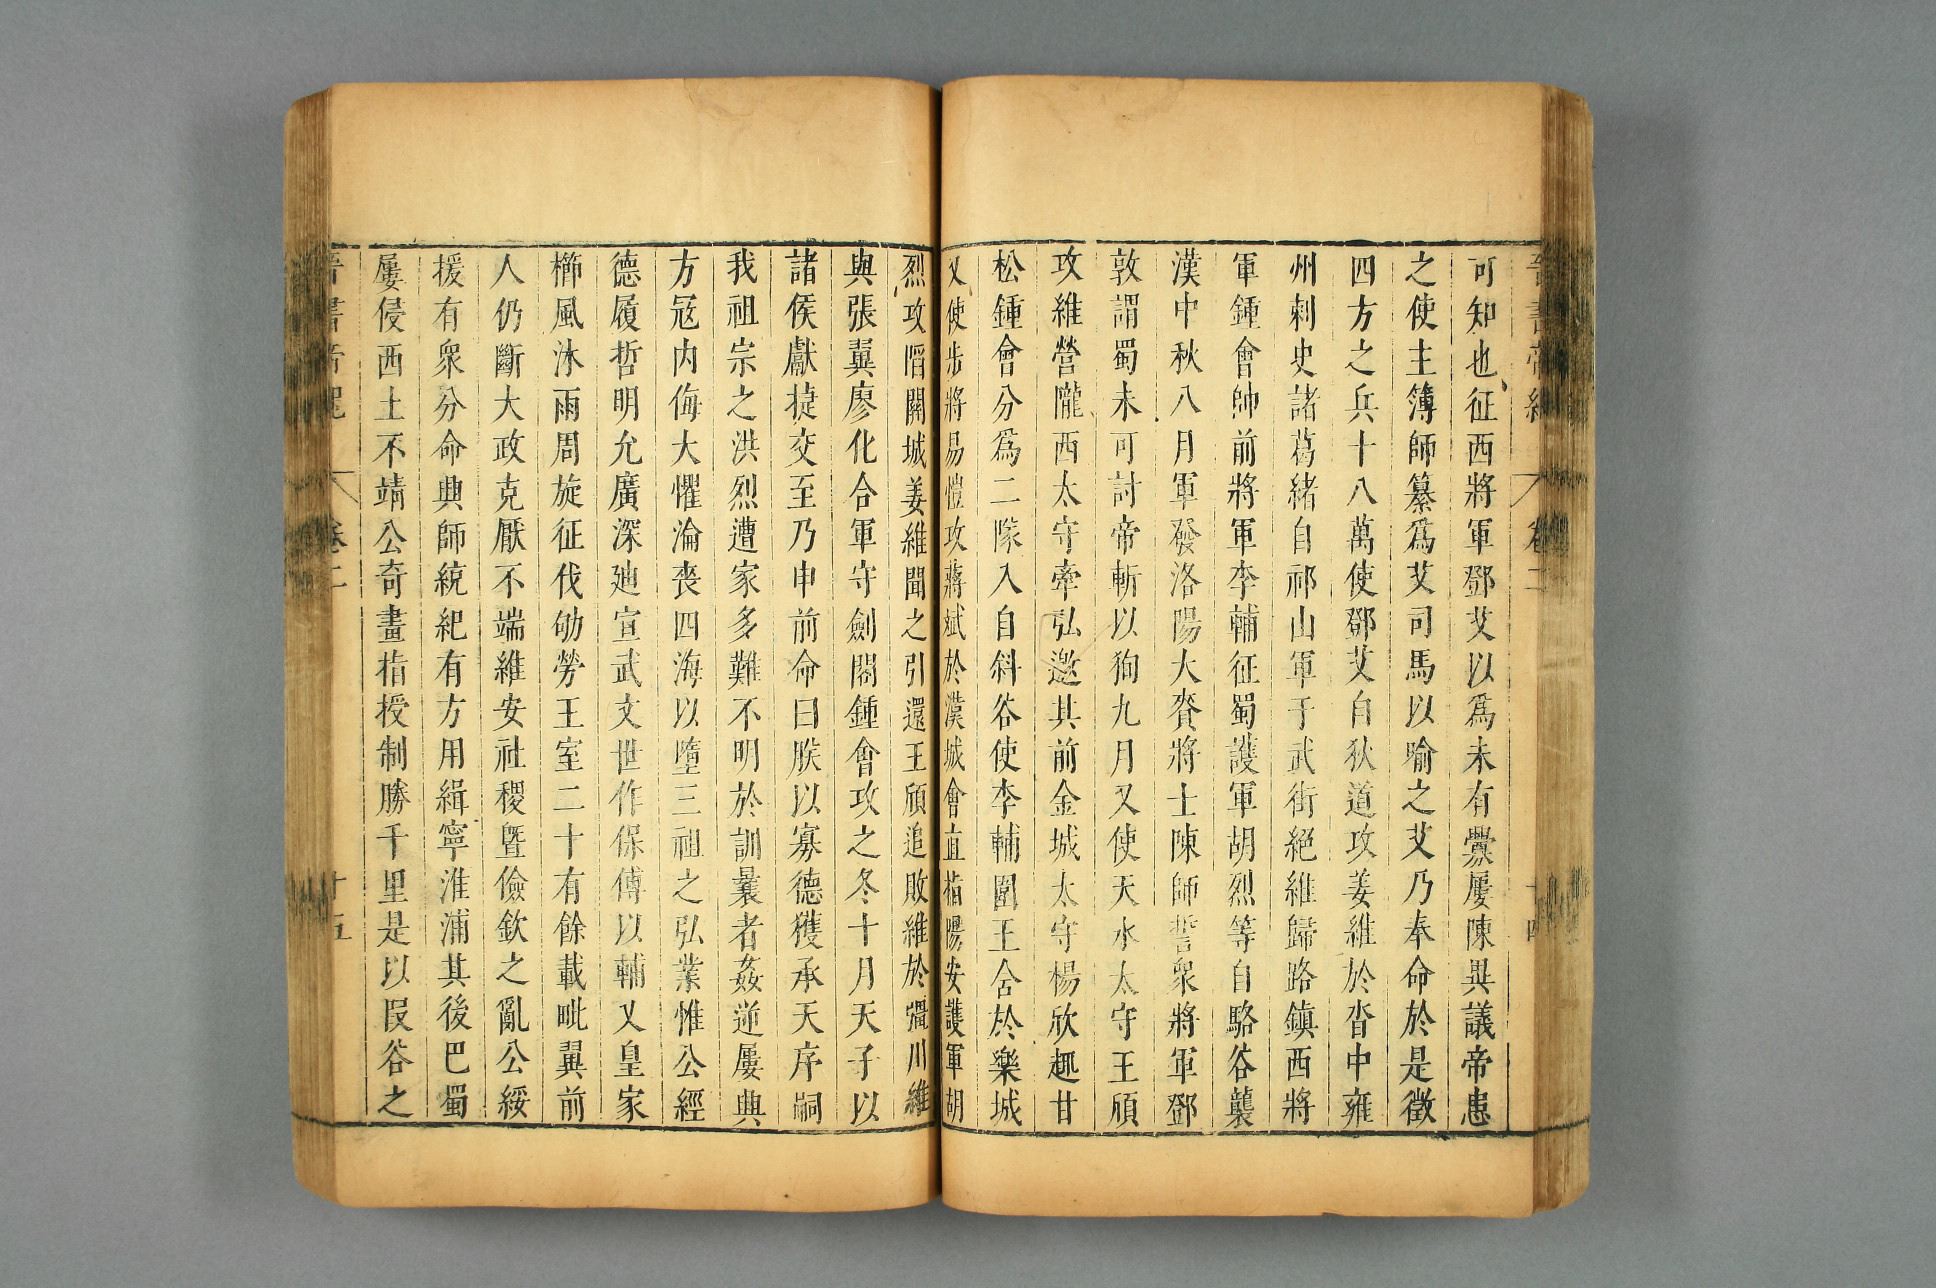 晉書帝紀 卷二 十四
可知也征西將軍鄧艾以爲未有釁屢陳異議帝患
之使主簿師纂爲艾司馬以喻之艾乃奉命於是徵
四方之兵十八萬使鄧艾自狄道攻姜維於沓中雍
州刺史諸葛緒自祁山軍于武街絕維歸路鎮西將
軍鍾會帥前將軍李輔征蜀護軍胡烈等自駱谷襲
漢中秋八月軍發洛陽大賚將士陳師誓衆將軍鄧
敦謂蜀未可討帝斬以狥九月又使天水太守王頎
攻維營隴西太守牽弘邀其前金城太守楊欣趣甘
松鍾會分爲二隊入自斜谷使李輔圍王含於樂城
又使步將易愷攻蔣斌於漢城會直指陽安護軍胡
烈攻陷關城姜維聞之引還王頎追敗維於彊川維
與張翼廖化合軍守劍閣鍾會攻之冬十月天子以
諸侯獻捷交至乃申前命曰朕以寡德獲承天序嗣
我祖宗之洪烈遭家多難不明於訓曩者姦逆屢興
方寇內侮大懼淪喪四海以墮三祖之弘業惟公經
德履哲明允廣深迪宣武文世作保傅以輔乂皇家
櫛風沐雨周旋征伐劬勞王室二十有餘載毗翼前
人仍斷大政克厭不端維安社稷曁儉欽之亂公綏
援有衆分命興師統紀有方用緝寧淮浦其後巴蜀
屢侵西土不靖公奇畫指授制勝千里是以叚谷之
晉書帝紀 卷二 十五